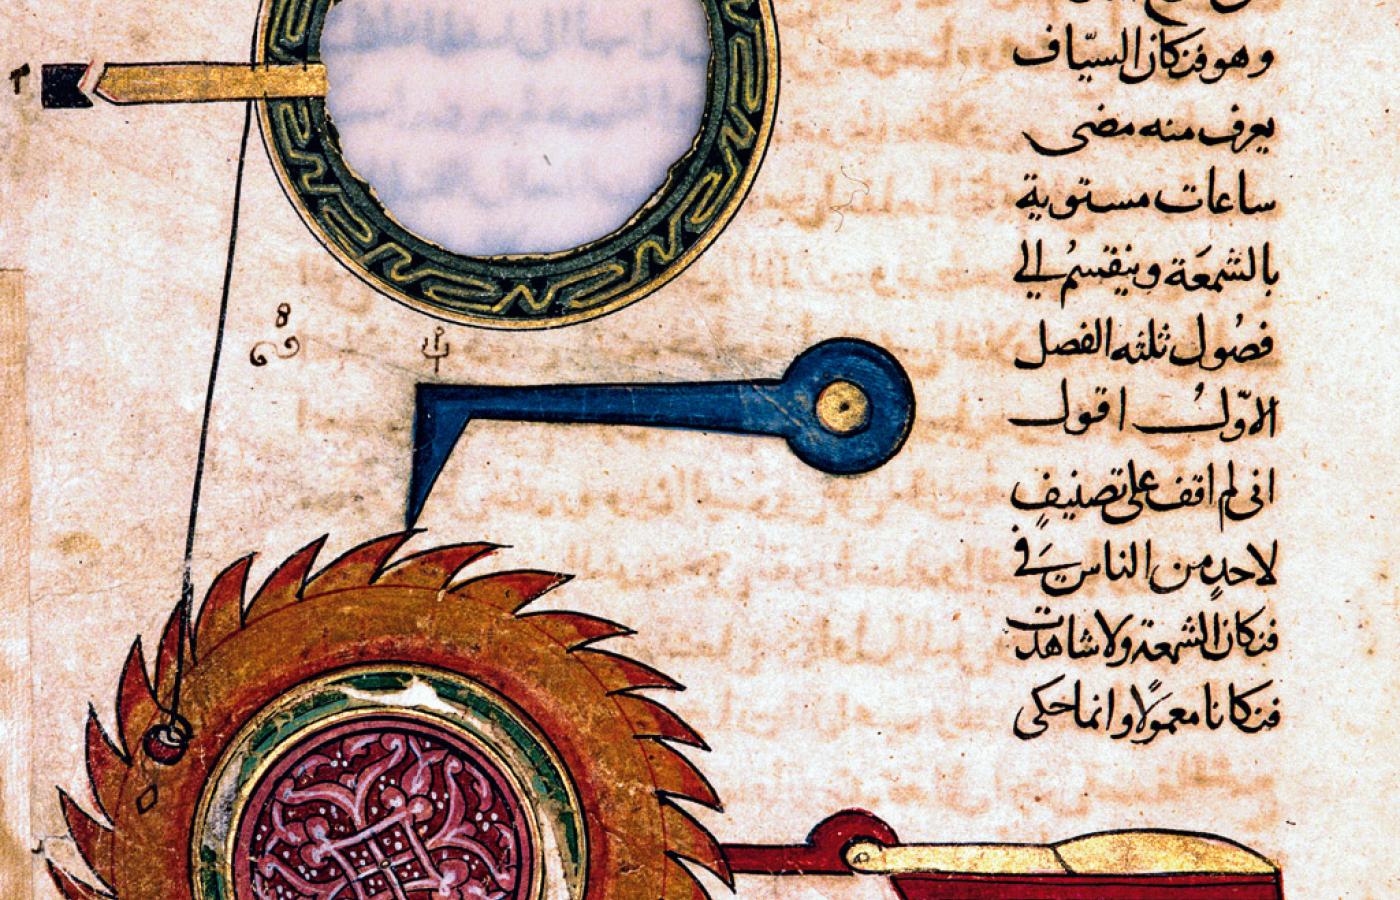 وهو فنكان السيّاف
يعرف منه مضى
ساعات مستوية
بالشمعَة وينقسمُ الي
فصُول ثلثه الفصل
الاوّلُ اقول
انى لم اقف على تصنيفٍ
لاحدٍ من الناس في
فنكان الشمعة ولا شاهدت
فنكانا معمولًا وانما حكى